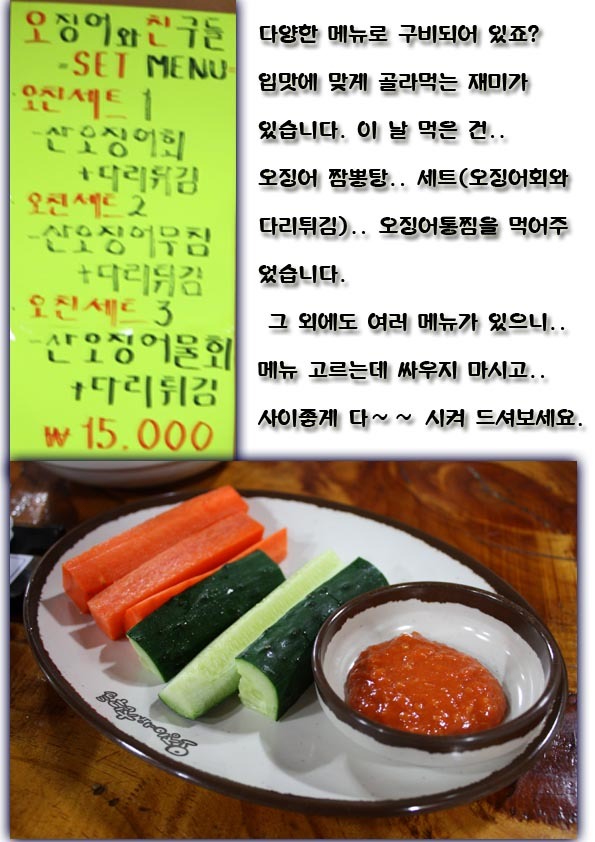 오징어와 친구들
-SET MENU-
오친세트 1
-산오징어회
+다리튀김
오친세트 2
-산오징어무침
+다리튀김
오친세트 3
-산오징어물회
+다리튀김
₩15.000
다양한 메뉴로 구비되어 있죠?
입맛에 맞게 골라먹는 재미가
있습니다. 이 날 먹은 건..
오징어 짬뽕탕.. 세트(오징어회와
다리튀김).. 오징어통찜을 먹어주
었습니다.
그 외에도 여러 메뉴가 있으니..
메뉴 고르는데 싸우지 마시고..
사이좋게 다~~ 시켜 드셔보세요.